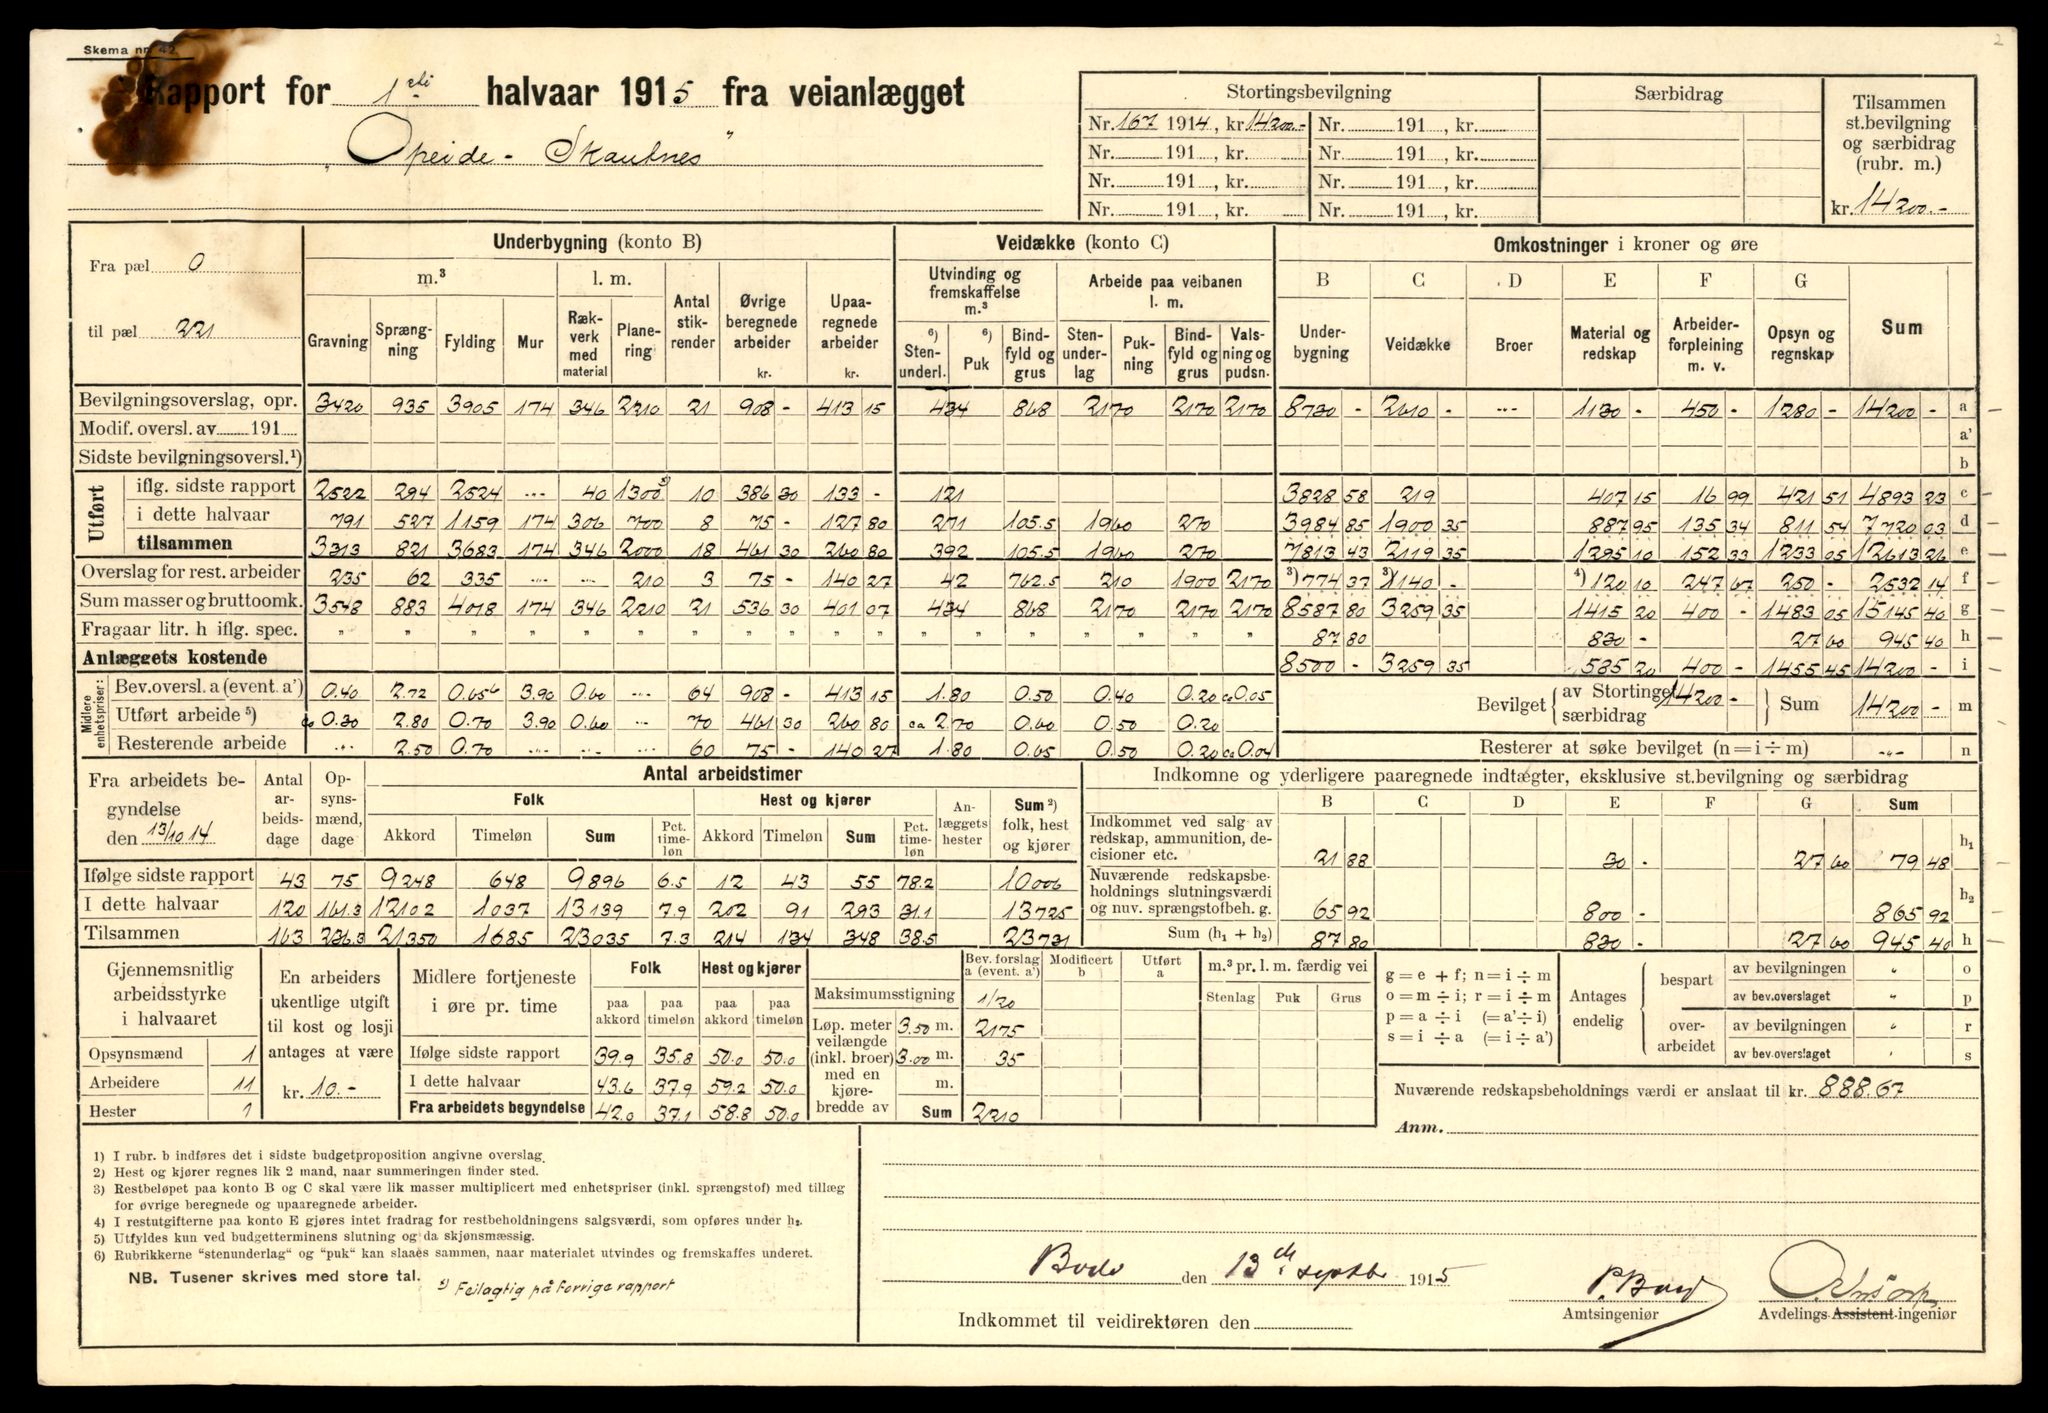 Skema nr. 42.
2
Rapport for 1ste halvaar 1915 fra veianlægget
„Opeide - Skaulnes"
Stortingsbevilgning
Nr. 167 1914, kr. 14200.- Nr. 191 , kr.
Nr. 191 , kr. Nr. 191 , kr.
Nr. 191 , kr. Nr. 191 , kr.
Nr. 191 , kr. Nr. 191 , kr.
Særbidrag
Tilsammen
st.bevilgning
og særbidrag
(rubr. m.)
kr. 14200.-
Fra pæl 0
til pæl 221
Underbygning (konto B)
m.³ l. m.
Gravning Sprængning Fylding Mur Rækverk med material Planering Antal stikrender Øvrige beregnede arbeider kr. Upaaregnede arbeider kr.
Veidække (konto C)
Utvinding og fremskaffelse m.³ Arbeide paa veibanen l. m.
⁶) Stenunderl. ⁶) Puk Bindfyld og grus Stenunderlag Pukning Bindfyld og grus Valsning og pudsn.
Omkostninger i kroner og øre
B C D E F G
Underbygning Veidække Broer Material og redskap Arbeiderforpleining m. v. Opsyn og regnskap Sum
Bevilgningsoverslag, opr. 3420 935 3905 174 346 2210 21 908 - 413 15 434 868 2170 2170 2170 8730 - 2610 - -..- 1130 - 450 - 1280 - 14200 - a
Modif. oversl. av 191 a'
Sidste bevilgningsoversl.¹) b
Utført iflg. sidste rapport 2522 294 2524 -..- 40 1300 10 386 30 133 - 121 3828 58 219 407 15 16 99 421 51 4893 23 c
i dette halvaar 791 527 1159 174 306 700 8 75 - 127 80 271 105.5 1960 270 3984 85 1900 35 887 95 135 34 811 54 7720 03 d
tilsammen 3313 821 3683 174 346 2000 18 461 30 260 80 392 105.5 1960 270 7813 43 2119 35 1295 10 152 33 1233 05 12613 26 e
Overslag for rest. arbeider 235 62 335 -..- -..- 210 3 75 - 140 27 42 762.5 210 1900 2170 ³) 774 37 ³) 1140 - ⁴) 120 10 247 67 250 - 2532 14 f
Sum masser og bruttoomk. 3548 883 4018 174 346 2210 21 536 30 401 07 434 868 2170 2170 2170 8587 80 3259 35 1415 20 400 - 1483 05 15145 40 g
Fragaar litr. h iflg. spec. " " " " " " " " " " " " " " " " " " 87 80 830 - 27 60 945 40 h
Anlæggets kostende 8500 - 3259 35 585 20 400 - 1455 45 14200 - i
Midlere enhetspriser:
Bev.oversl. a (event. a') 0.40 2.72 0.656 3.90 0.60 -..- 64 908 - 413 15 1.80 0.50 0.40 0.20 ca 0.05
Utført arbeide⁵) ca 0.30 2.80 0.70 3.90 0.60 -..- 70 461 30 260 80 ca 2.70 0.60 0.50 0.20
Resterende arbeide -..- 2.50 0.70 -..- -..- -..- 60 75 - 140 27 1.80 0.65 0.50 0.20 ca 0.04
Bevilget av Stortinget 14200 - særbidrag Sum 14200 - m
Resterer at søke bevilget (n = i ÷ m) -..- n
Fra arbeidets begyndelse
den 13/10 14
Antal arbeidsdage Opsynsmænd, dage
Antal arbeidstimer
Folk Hest og kjører Anlæggets hester Sum²) folk, hest og kjører
Akkord Timeløn Sum Pct. timeløn Akkord Timeløn Sum Pct. timeløn
Ifølge sidste rapport 43 75 9248 648 9896 6.5 12 43 55 78.2 10006
I dette halvaar 120 161.3 12102 1037 13139 7.9 202 91 293 31.1 13725
Tilsammen 163 236.3 21350 1685 23035 7.3 214 134 348 38.5 23731
Indkomne og yderligere paaregnede indtægter, eksklusive st.bevilgning og særbidrag
B C D E F G Sum
Indkommet ved salg av redskap, ammunition, decisioner etc. 21 88 30 - 27 60 79 48 h₁
Nuværende redskapsbeholdnings slutningsværdi og nuv. sprængstofbeh. g. 65 92 800 - 865 92 h₂
Sum (h₁ + h₂) 87 80 830 - 27 60 945 40 h
Gjennemsnitlig
arbeidsstyrke
i halvaaret
Opsynsmænd 1
Arbeidere 11
Hester 1
En arbeiders
ukentlige utgift
til kost og losji
antages at være
kr. 10.-
Midlere fortjeneste
i øre pr. time
Folk Hest og kjører
paa akkord paa timeløn paa akkord paa timeløn
Ifølge sidste rapport 39.9 35.8 50.0 50.0
I dette halvaar 43.6 37.9 59.2 50.0
Fra arbeidets begyndelse 42.0 37.1 58.8 50.0
Bev. forslag a (event. a') Modificert b Utført a
Maksimumsstigning 1/20
Løp. meter veilængde (inkl. broer) med en kjørebredde av
3.50 m. 2175
3.00 m. 35
m.
Sum 2210
m.³ pr. l. m. færdig vei
Stenlag Puk Grus
g = e + f; n = i ÷ m
o = m ÷ i; r = i ÷ m
p = a ÷ i (= a' ÷ i)
s = i ÷ a (= i ÷ a')
Antages endelig
bespart av bevilgningen " o
av bev.overslaget " p
overarbeidet av bevilgningen " r
av bev.overslaget " s
Nuværende redskapsbeholdnings værdi er anslaat til kr. 888.67
Anm.
1) I rubr. b indføres det i sidste budgetproposition angivne overslag.
2) Hest og kjører regnes lik 2 mand, naar summeringen finder sted.
3) Restbeløpet paa konto B og C skal være lik masser multiplicert med enhetspriser (inkl. sprængstof) med tillæg
for øvrige beregnede og upaaregnede arbeider.
4) I restutgifterne paa konto E gjøres intet fradrag for restbeholdningens salgsværdi, som opføres under h₂.
5) Utfyldes kun ved budgetterminens slutning og da skjønsmæssig.
6) Rubrikkerne "stenunderlag" og "puk" kan slaaes sammen, naar materialet utvindes og fremskaffes underet.
NB. Tusener skrives med store tal.
Feilagtig på forrige rapport
Bodø den 13de septbr 1915
P. Bou
Amtsingeniør
Avdelings Assistent ingeniør
Indkommet til veidirektøren den